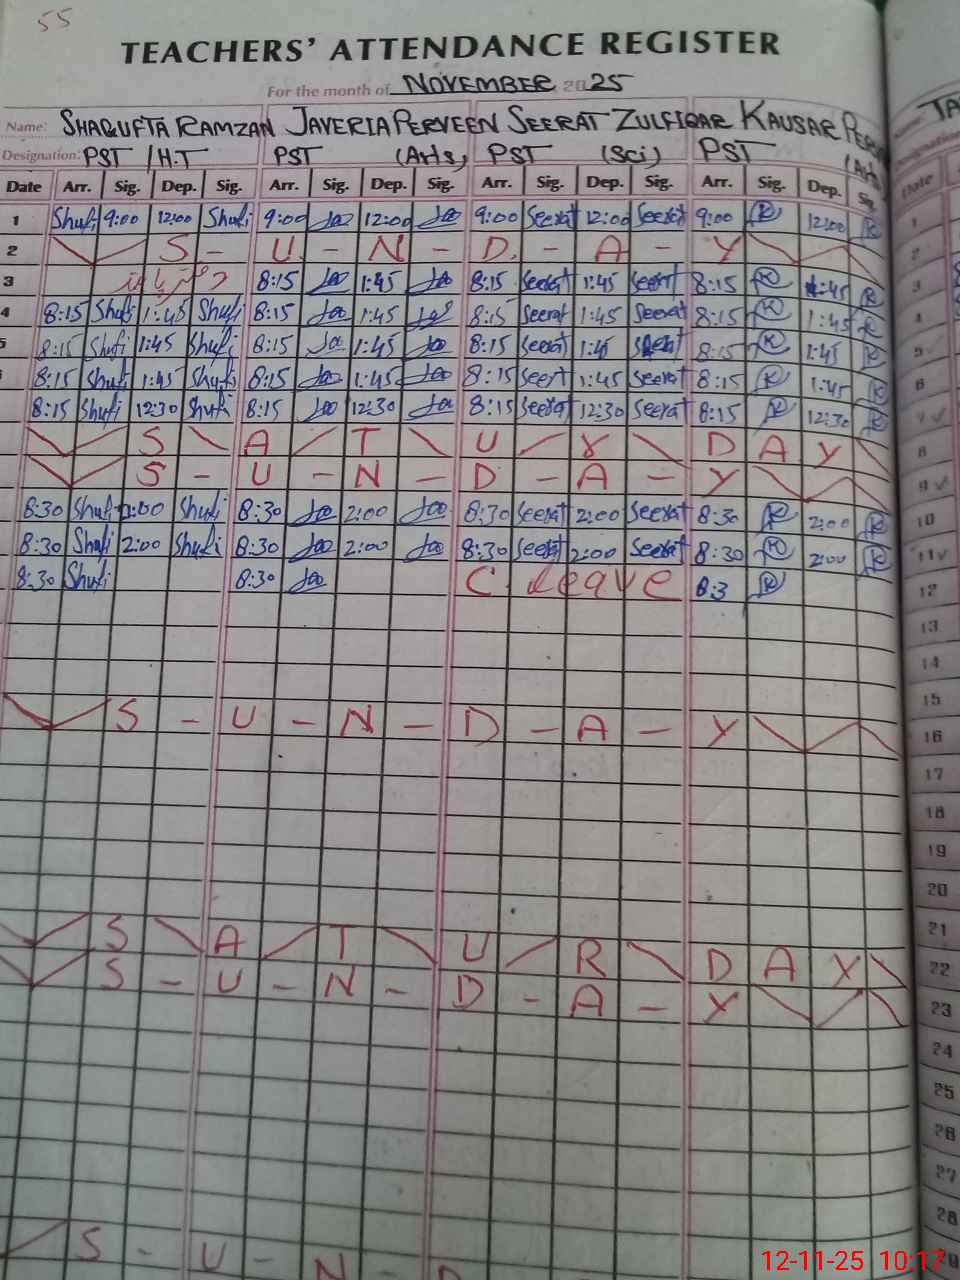 55
TEACHERS' ATTENDANCE REGISTER
For the month of NOVEMBER 2025
Name: SHAGUFTA RAMZAN JAVERIA PERVEEN SEERAT ZULFIQAR KAUSAR PER
Designation: PST / H.T PST (Arts) PST (Sci) PST (Arts
Date Arr. Sig. Dep. Sig. Arr. Sig. Dep. Sig. Arr. Sig. Dep. Sig. Arr. Sig. Dep. Sig.
1 Shufi 9:00 12:00 Shufi 9:00 12:00 9:00 Seerat 12:00 Seerat 9:00 K 12:00 K 1
2 S - U - N - D - A - Y 2
3 8:15 1:45 8:15 Seerat 1:45 Seerat 8:15 K 1:45 K 3
4 8:15 Shufi 1:45 Shufi 8:15 1:45 8:15 Seerat 1:45 Seerat 8:15 K 1:45 K 4
5 8:15 Shufi 1:45 Shufi 8:15 1:45 8:15 Seerat 1:45 Seerat 8:15 K 1:45 K 5
8:15 Shufi 1:45 Shufi 8:15 1:45 8:15 Seert 1:45 Seerat 8:15 K 1:45 K 6
8:15 Shufi 12:30 Shufi 8:15 12:30 8:15 Seerat 12:30 Seerat 8:15 K 12:30 K 7
S A T U R D A Y 8
S - U - N - D - A - Y 9
8:30 Shufi 2:00 Shufi 8:30 2:00 8:30 Seerat 2:00 Seerat 8:30 K 2:00 K 10
8:30 Shufi 2:00 Shufi 8:30 2:00 8:30 Seerat 2:00 Seerat 8:30 K 2:00 K 11
8:30 Shufi 8:30 C leave 8:3 K 12
13
14
15
S - U - N - D - A - Y 16
17
18
19
20
21
S A T U R D A Y 22
S - U - N - D - A - Y 23
24
25
26
27
28
S - U - N D
12-11-25 10:17